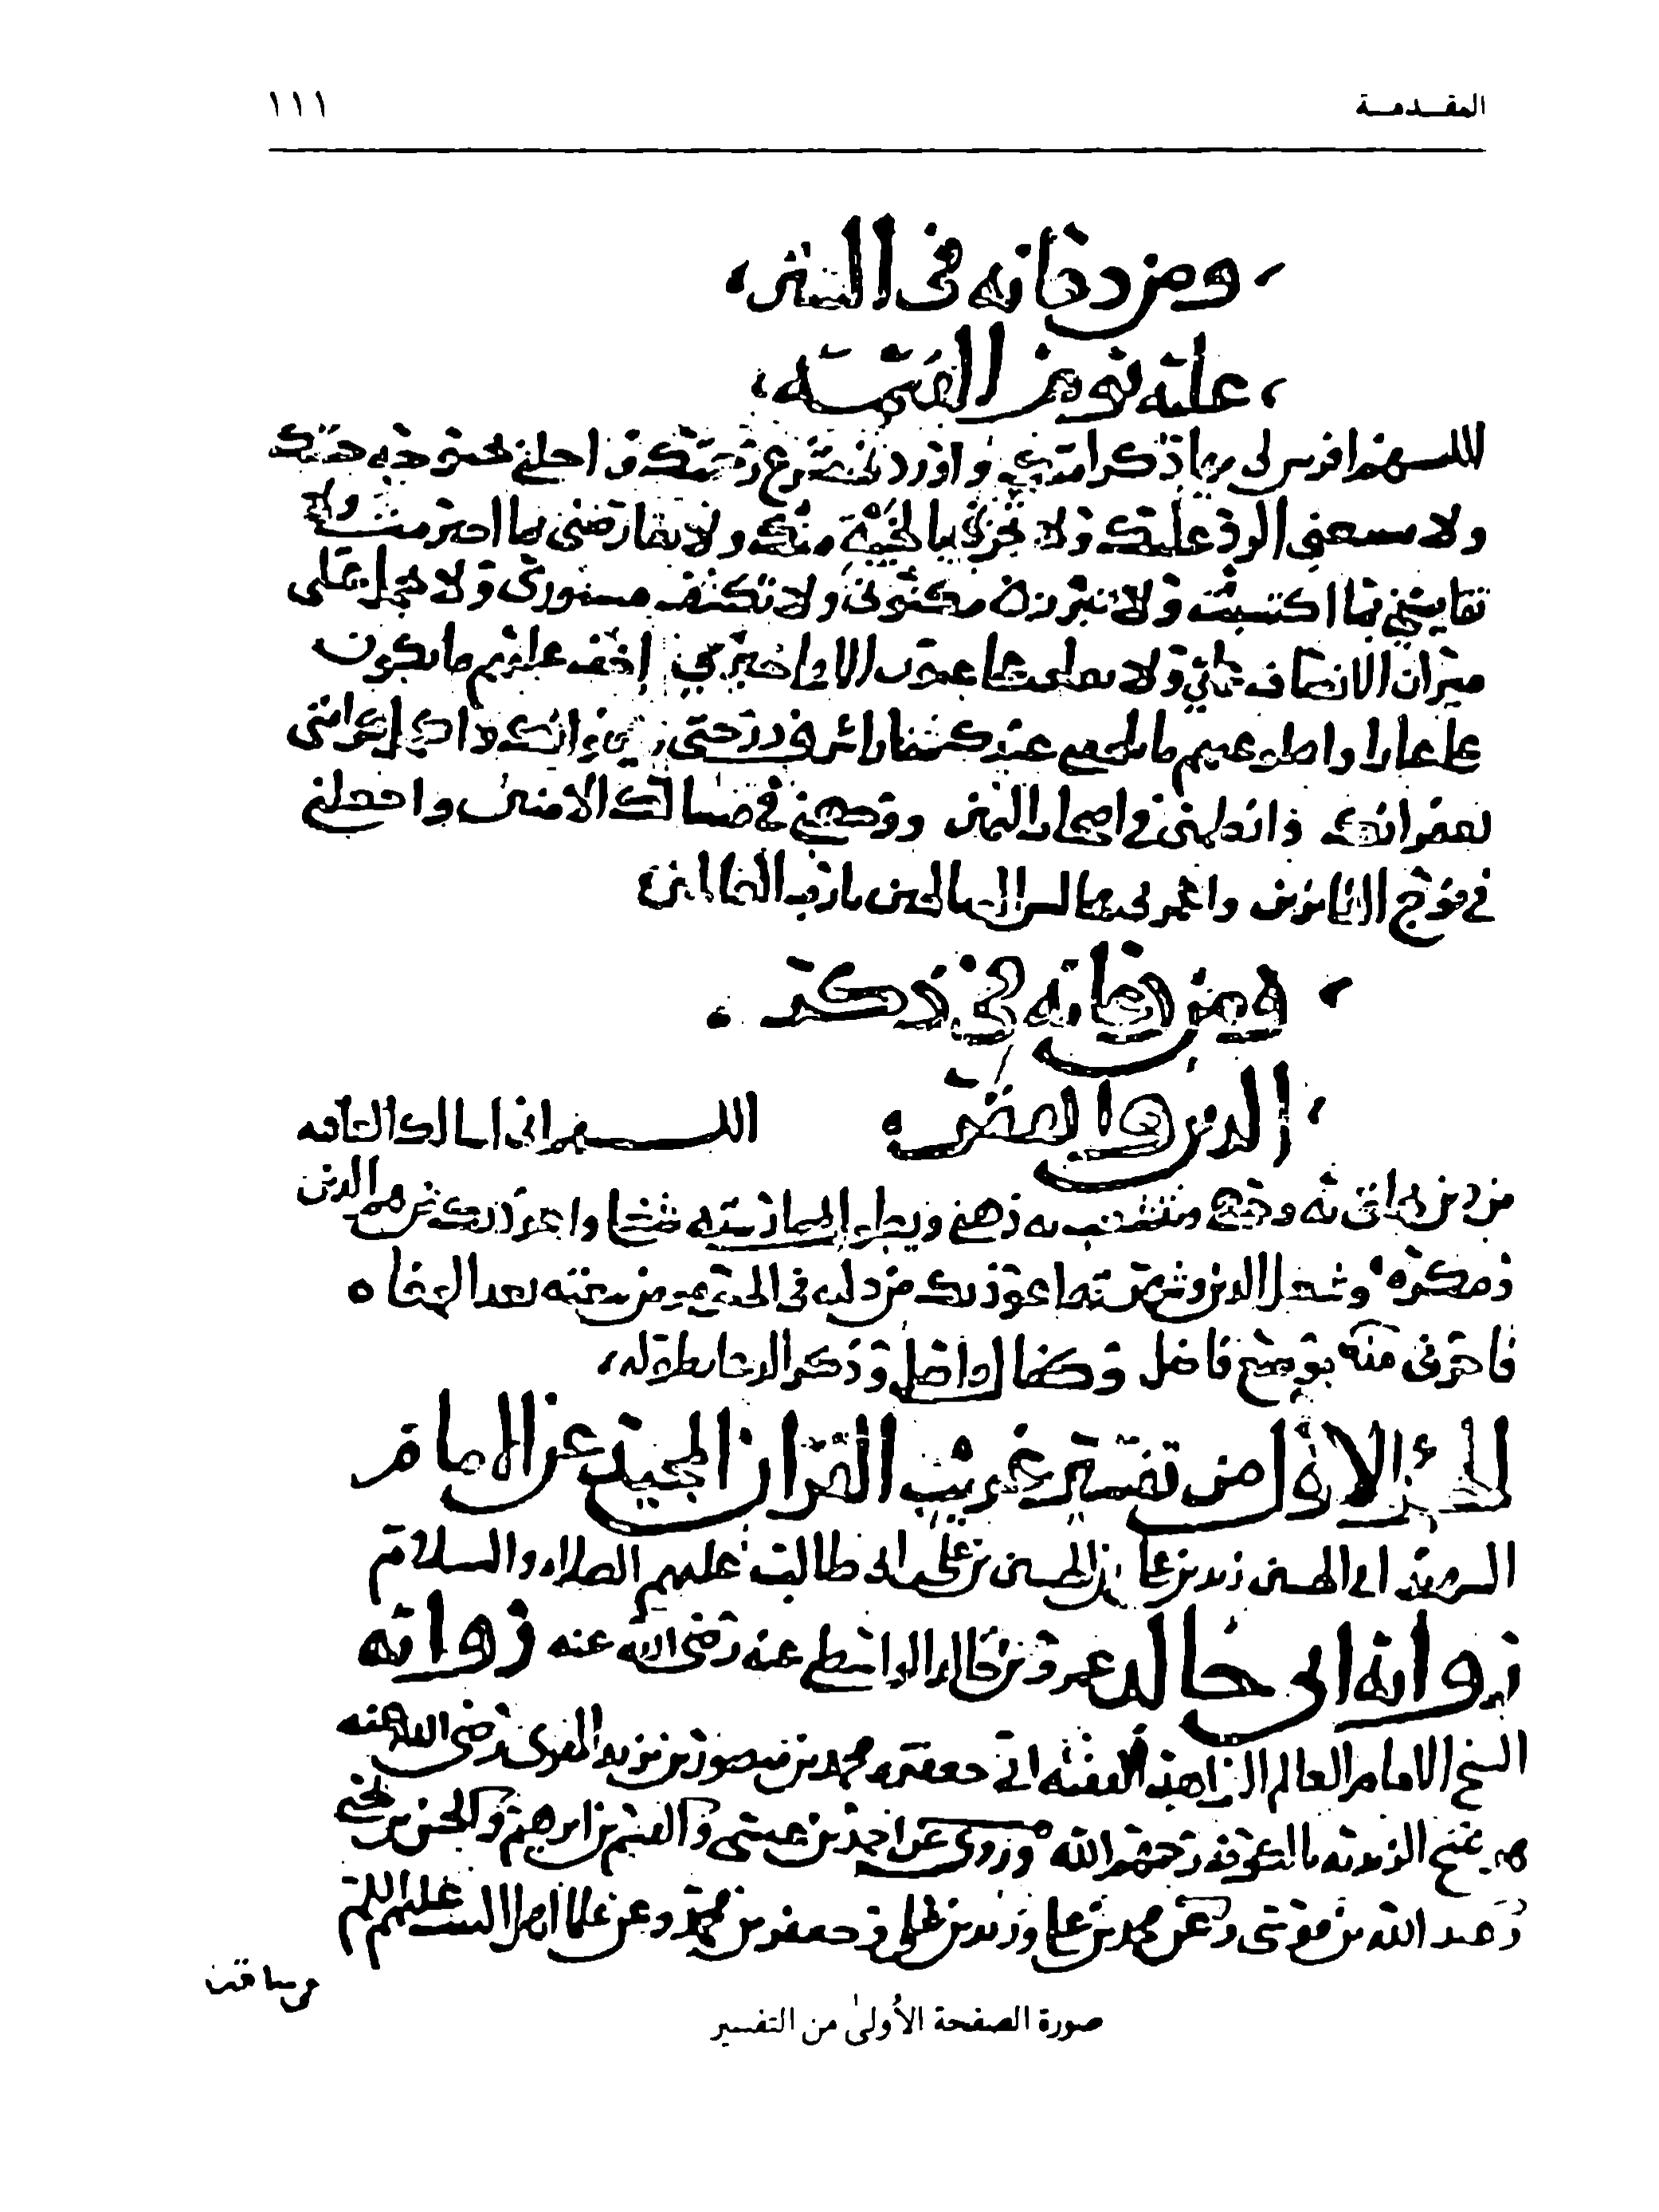 المقدمة
١١١
ومن دعائه في الستر
عليه يوم القيمة
اللهم افرش لي مهاد كرامتك واورد رحمتك احللني بحبوحة جنتك
ولا بالرد عليك ولا بالخيبة منك ولا تقاصني بما اجترمت ولا
تناقشني بما اكتسبت ولا تبرز مكتومي ولا تكشف مستوري ولا تحمل على
ميزان الانصاف عملي ولا على عيون الملا خبري اخف عليهم ما يكون
على عارا واطو عنهم ما يلحقني عندك شنارا شرف درجتي برضوانك واكمل كرامتي
بغفرانك وانظمني في اصحاب اليمين ووجهني في مسالك الامنين واجعلني
في فوج الفائزين واعمر بي مجالس الصالحين يا رب العالمين
ومن دعائه في ذكر
الدين
اللهم اني اسالك العافية
من دين به وجهي به ذهني له واعوذ بك من هم الدين
وفكره وشغل الدين واعوذ بك من ذلته في الحيوة ومن تبعته بعد الوفاة
فاجرني منه بوسع فاضل وكفاف واصل وذكر الدعا بطوله
الجزء الاول من تفسير غريب القران المجيد عن الامام
الشهيد ابي الحسين زيد بن علي بن الحسين بن علي بن ابي طالب عليهم الصلاة والسلام
رواية ابي خالد عمرو بن خالد الواسطي عنه رضي الله عنه رواية
الشيخ الامام العالم الزاهد الفقيه ابي جعفر محمد بن منصور بن يزيد المقري رضي الله عنه
شيخ الزيدية بالكوفة رحمهم الله وروى عن احمد بن عيسى والقسم بن ابرهيم والحسن بن يحيى
وعبد الله بن موسى وعن محمد بن علي وزيد بن علي وجعفر بن محمد وعن علماء اهل البيت عليهم السلم
صورة الصفحة الأولى من التفسير